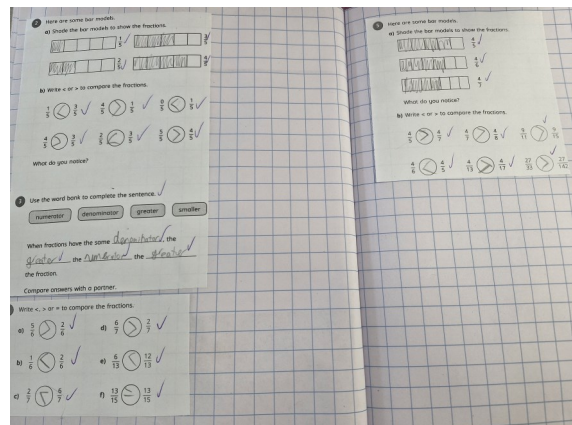 2 Here are some bar models.
a) Shade the bar models to show the fractions.
1/5 3/5
2/5 4/5
b) Write < or > to compare the fractions.
1/5 < 3/5 4/5 > 1/5 0/5 < 1/5
4/5 > 3/5 2/5 < 3/5 5/5 > 4/5
What do you notice?
3 Use the word bank to complete the sentence.
numerator denominator greater smaller
When fractions have the same denominator, the
greater the numerator the greater
the fraction.
Compare answers with a partner.
Write <, > or = to compare the fractions.
a) 5/6 > 2/6 d) 6/7 > 2/7
b) 1/6 < 2/6 e) 6/13 < 12/13
c) 2/7 < 6/7 f) 13/15 = 13/15
5 Here are some bar models.
a) Shade the bar models to show the fractions.
4/5
4/6
4/7
What do you notice?
b) Write < or > to compare the fractions.
4/5 > 4/7 4/7 > 4/8 9/11 > 9/25
4/6 < 4/5 4/13 > 4/17 27/33 > 27/142